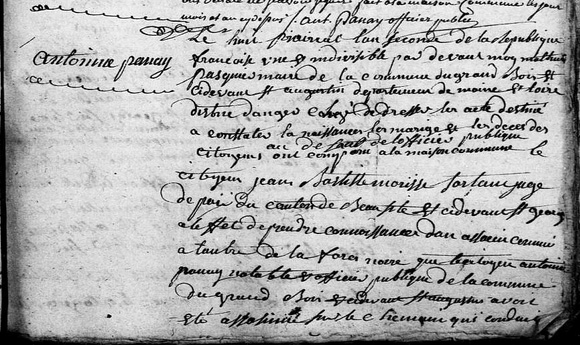 mois et an cydesus. ant. panay officier publicq
Le huit prairial lan seconde de la Republique
antoinne panay
francoise une et indivisible par devant moy mathurin
pasquer maire de la commune du grand Bois et
cidevant st augustin departement de maine et loire
distric d'angers charge de dresser les acte destiné
a constater la naissances les mariage et les deces des
au de faut de lofficier publique
citoyens ont comparu a la maison commune le
citoyen jean Batiste morisse fortant juge
de paix du canton de Beausite et cidevant st georg
a leffet de prendre connoissance dun assasin commi
a laube de la forès noire que le citoyen antoine
panay notable et officier publique de la commune
du grand Bois et cidevant st augustin avoit
eté assassiné sur le chemain qui conduit